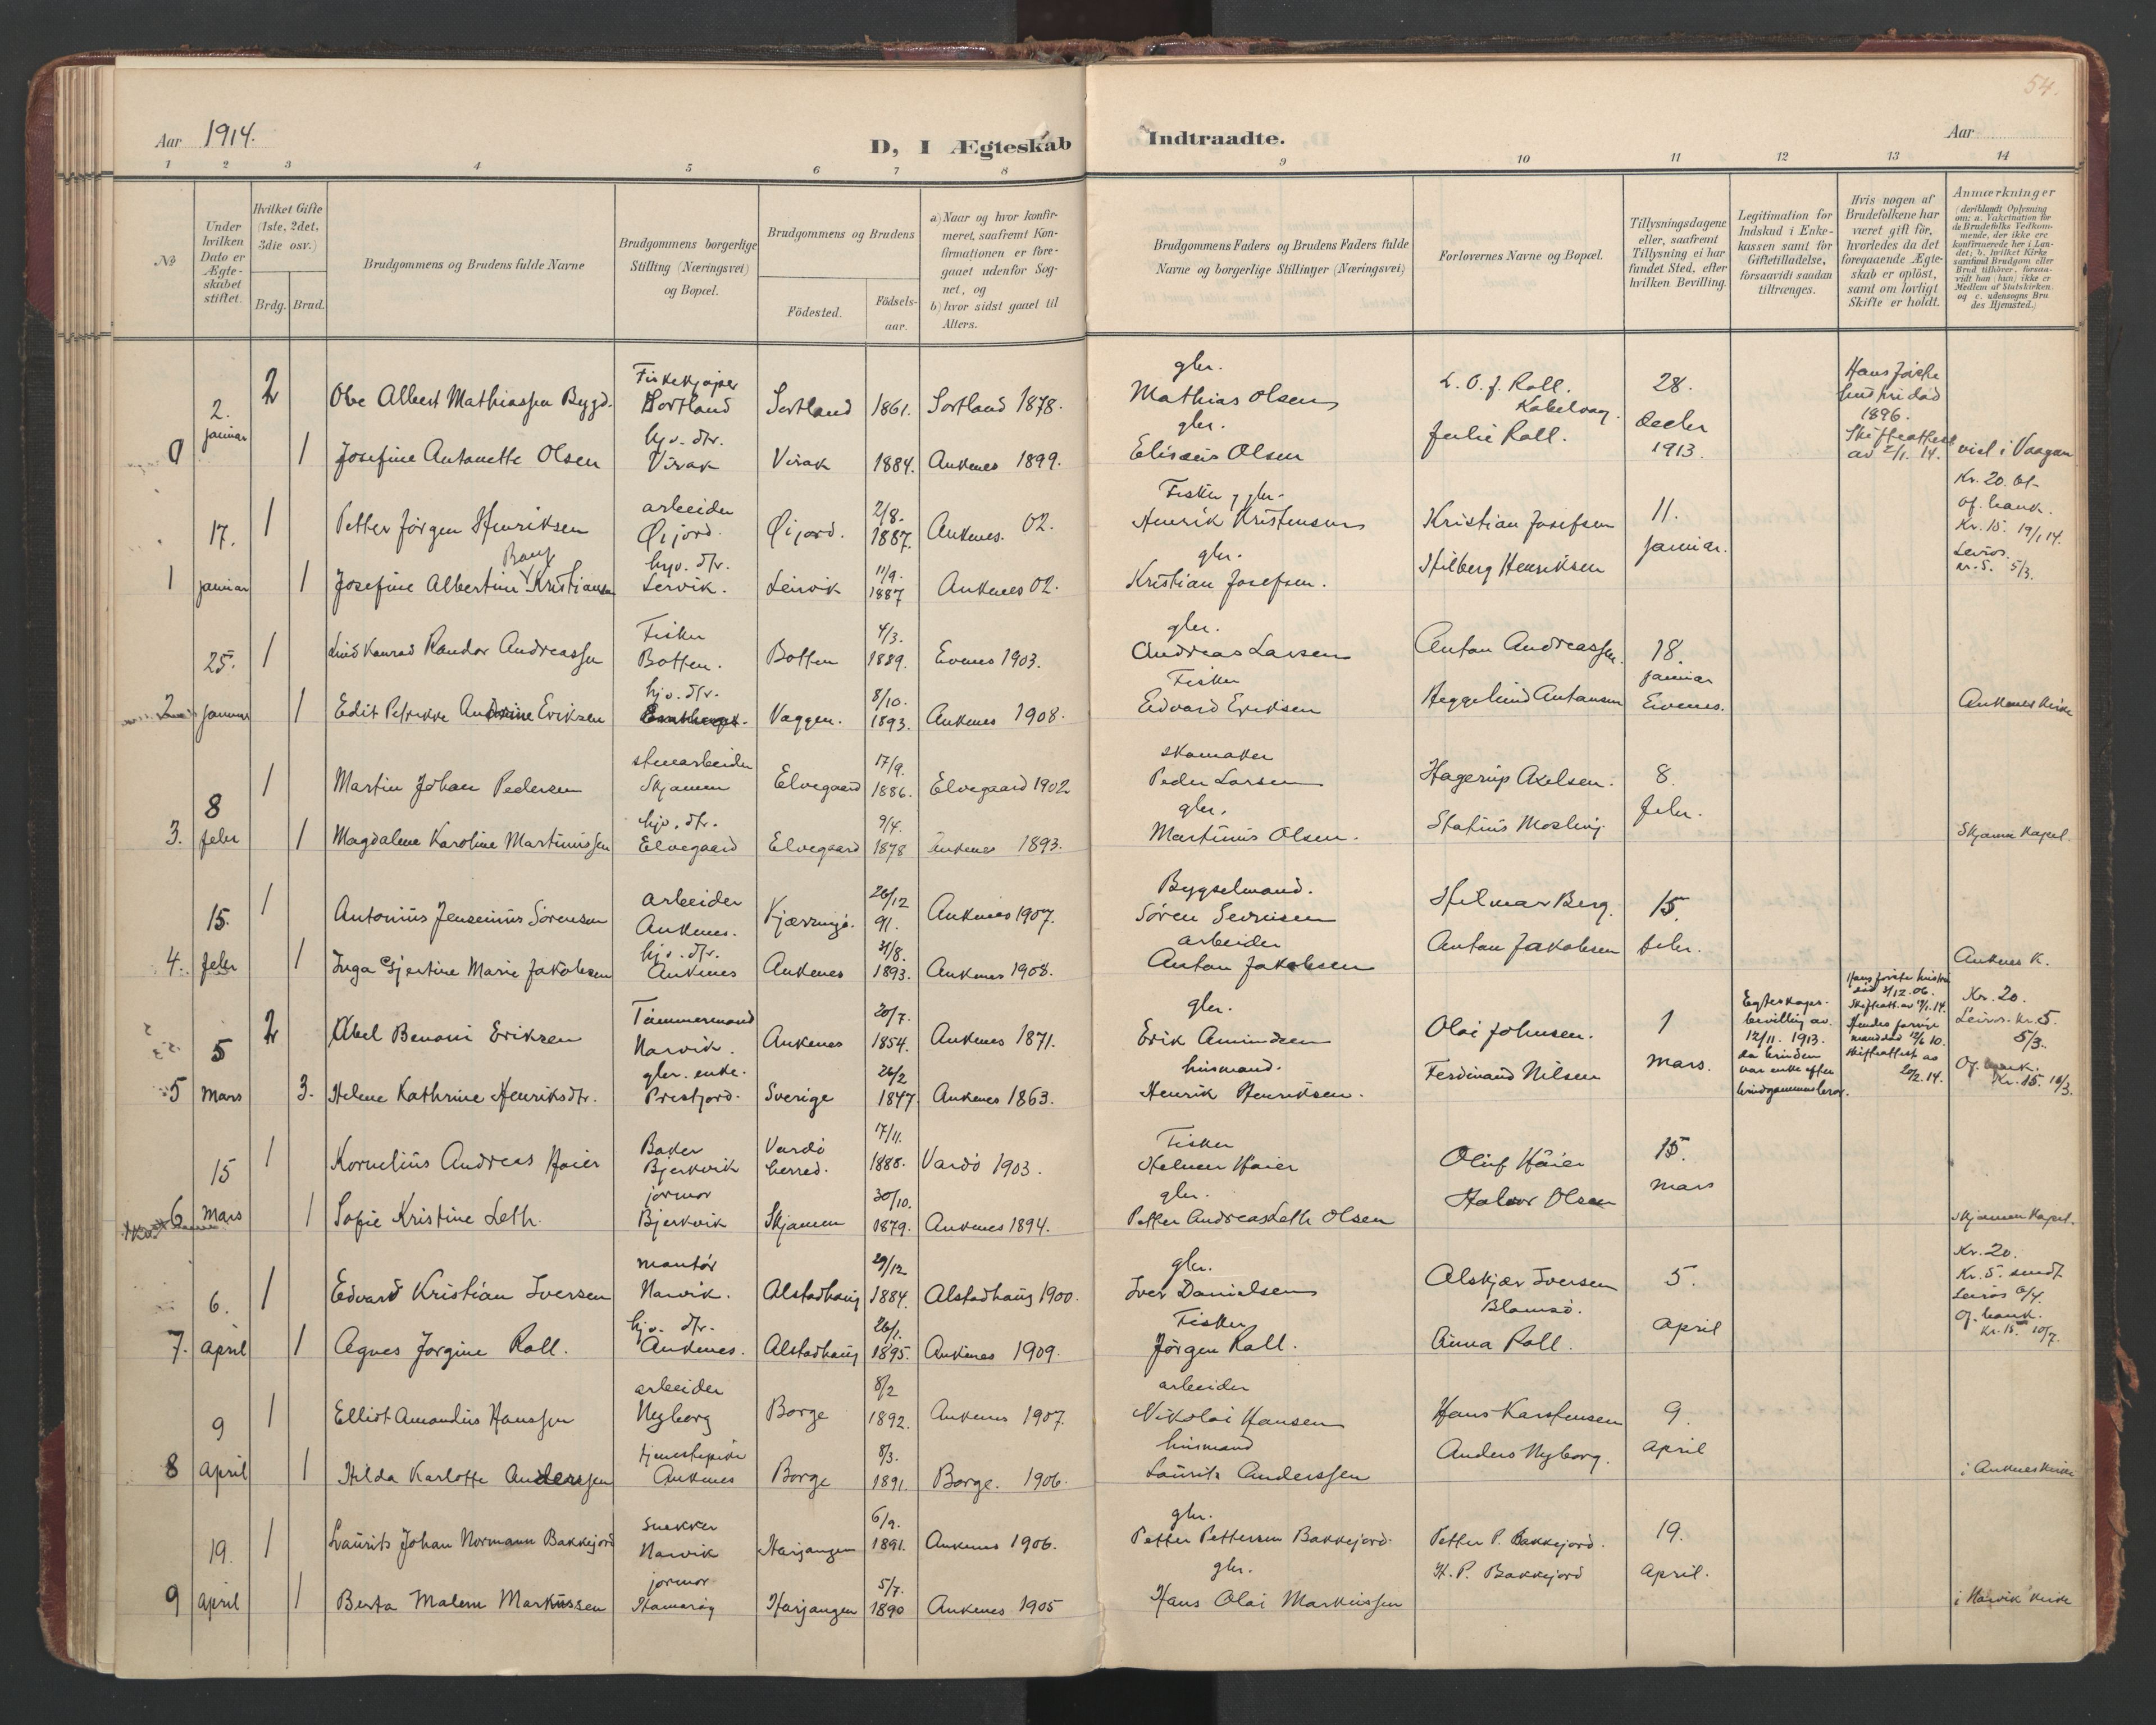 54.
Aar 1914.
D, I Ægteskab
Indtraadte.
Aar
1 2 3 4 5 6 7 8 9 10 11 12 13 14
No
Under hvilken Dato er Ægteskabet stiftet.
Hvilket Gifte (1ste, 2det, 3die osv.)
Brdg. Brud.
Brudgommens og Brudens fulde Navne
Brudgommens borgerlige Stilling (Næringsvei) og Bopæl.
Brudgommens og Brudens
Födested.
Födsels-aar.
a) Naar og hvor konfirmeret, saafremt Konfirmationen er foregaaet udenfor Sognet, og
b) hvor sidst gaaet til Alters.
Brudgommens Faders og Brudens Faders fulde Navne og borgerlige Stillinger (Næringsvei)
Forlovernes Navne og Bopæl.
Tillysningsdagene eller, saafremt Tillysning ei har fundet Sted, efter hvilken Bevilling.
Legitimation for Indskud i Enkekassen samt for Giftetilladelse, forsaavidt saadan tiltrænges.
Hvis nogen af Brudefolkene har været gift för, hvorledes da det foregaaende Ægteskab er oplöst, samt om lovligt Skifte er holdt.
Anmærkninger
(deriblandt Oplysning om: a. Vakcination for de Brudefolks Vedkommende, der ikke ere konfirmerede her i Landet; b. hvilket Kirkesamfund Brudgom eller Brud tilhörer, forsaavidt han (hun) ikke er Medlem af Statskirken, og c. udensogns Brudes Hjemsted.)
2. januar 2 Obe Albert Mathiassen Bygd. Fiskekjøper Sortland Sortland 1861. Sortland 1878. gbr. Mathias Olsen L. O. J. Roll. Kabelvag 28. decbr 1913 Hans første hustru død 1896. Skifteattest av 2/1. 14.
1 Josefine Antonette Olsen hjv. dtr. Virak Virak 1884. Ankenes 1899. gbr. Elisæus Olsen Julie Roll. viet i Vaagan
1 17. januar 1 Petter Jörgen Henriksen arbeider Øijord Øijord. 2/8. 1887. Ankenes. 02. Fisker, gbr. Henrik Kristensen Kristian Josefsen 11. januar. Kr. 20. Of. bank. Kr. 15. 19/1 14.
1 Josefine Albertine Kristiansen hjv. dtr. Lervik. Leirvik 11/9. 1887 Ankenes 02. gbr. Kristian Josefsen. Hilberg Henriksen kr. 5. 5/3.
2 25. januar 1 Konrad Randor Andreassen Fisker Botten. Botten 4/3. 1889. Evenes 1903. gbr. Andreas Larsen Anton Andreassen. 18. januar Evenes.
1 Edit Petrikke Andrine Eriksen hjv. dtr. Vaggen. 8/10. 1893. Ankenes 1908. Fisker Edvard Eriksen Heggelund Antonsen Ankenes kirke
3. 8 febr 1 Martin Johan Pedersen stenarbeider Skjomen Elvegaard 17/9. 1886. Elvegaard 1902 skomaker Peder Larsen Hagerup Axelsen. 8. febr.
1 Magdalene Karoline Martinussen hjv. dtr. Elvegaard Elvegaard 9/4. 1878 Ankenes 1893. gbr. Martinus Olsen. Statius Mosling Skjomen Kapel.
4. 15. febr 1 Antonius Jensenius Sörensen arbeider Ankenes. 26/12 91. Ankenes 1907. Bygselmand. Sören Hilmar Berg. 15. febr.
1 Inga Gjertine Marie Jakobsen hjv. dtr. Ankenes Ankenes 31/8. 1893. Ankenes 1908. arbeider Anton Jakobsen Anton Jakobsen Ankenes K.
5 5 Mars 2 Abel Benoni Eriksen Tømmermand Narvik. Ankenes 20/7. 1854. Ankenes 1871. gbr. Erik Amundsen Olai Johnsen. 1 mars. Egteskapsbevilling av 12/11. 1913. da bruden var enke efter brudgommens bror. Hans første hustru død 3/12. 06. Skifteatt. av 7/1. 14. Kr. 20. Kr. 5. 5/3.
3. Helene Kathrine Henriksdtr. gbr. enke. Prestjord. Sverige 26/2 1847. Ankenes 1863. husmand. Henrik Henriksen. Ferdinand Nilsen skifteattest av 20/2. 14. Of. bank. Kr. 15. 18/3.
6 15 Mars 1 Kornelius Andreas Haier Baker Bjerkvik Vardö herred. 17/11. 1888. Vardö 1903. Fisker Helmer Haier Oluf Häier 15. mars
1 Sofie Kristine Leth. jormor Bjerkvik Skjomen 30/10. 1879. Ankenes 1894. gbr. Petter Andreas Leth Olsen Halvor Olsen Skjomen Kapel.
7. 6. april 1 Edvard Kristian Iversen montør Narvik. Alstadhaug 29/12 1884. Alstadhaug 1900. gbr. Iver Danielsen Alskjær Iversen 5. april Kr. 20. Kr. 5. sendt
1 Agnes Jørgine Roll. hjv. dtr. Ankenes. Alstadhaug 26/1. 1895. Ankenes 1909. Fisker Jörgen Roll. Anna Roll. Of. bank. Kr. 15. 10/7.
8 9 april 1 Elliot Amandus Hanssen arbeider Nyborg Borge 8/2 1892. Ankenes 1907. arbeider Nikolai Hansen Hans Karstensen 9. april
1 Hilda Karlotte Anderssen tjenestepike Ankenes Borge 8/3. 1891. Borge. 1906. husmand Laurits Anderssen Anders Nyborg. i Ankenes kirke
9 19. april 1 Laurits Johan Normann Bakkejord snekker Narvik Harjangen 6/9. 1891. Ankenes 1906. gbr. Petter Pettersen Bakkejord. Petter P. Bakkejord. 19. april.
1 Berta Malene Markussen jormor Hamarøy Harjangen 5/7. 1890 Ankenes 1905 gbr. Hans Olai Markussen H. P. Bakkejord i Narvik kirke